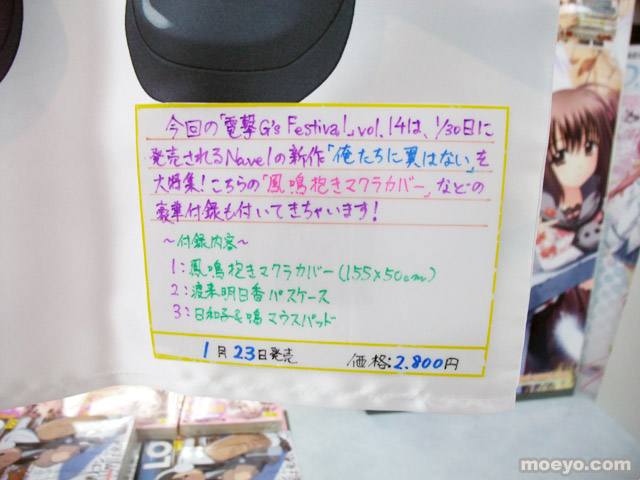 今回の「電撃G's Festival」vol.14は、1/30日に
発売されるNavelの新作「俺たちに翼はない」を
大特集!こちらの「鳳鳴抱きマクラカバー」などの
豪華付録も付いてきちゃいます!
～付録内容～
1:鳳鳴抱きマクラカバー(155×50cm)
2:渡来明日香パスケース
3:日和子&鳴マウスパッド
1月23日発売 価格:2,800円
LO
moeyo.com